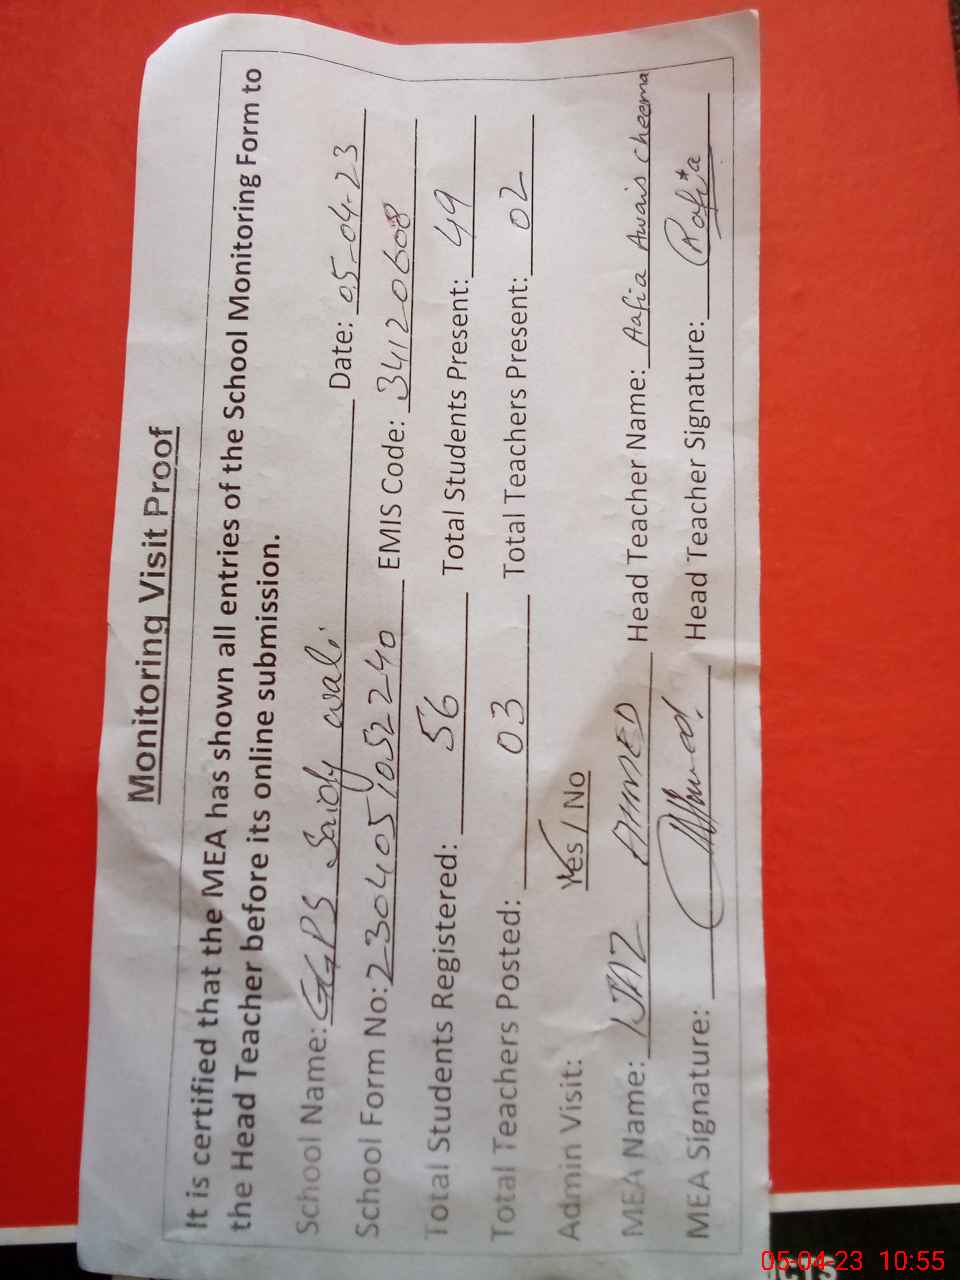 Monitoring Visit Proof
It is certified that the MEA has shown all entries of the School Monitoring Form to
the Head Teacher before its online submission.
School Name: GGPS Saidy wali Date: 05-04-23
School Form No: 2304051052240 EMIS Code: 34120608
Total Students Registered: 56 Total Students Present: 49
Total Teachers Posted: 03 Total Teachers Present: 02
Admin Visit: Yes / No
MEA Name: IJAZ AHMED Head Teacher Name: Aafia Awais cheema
MEA Signature: Ahmed. Head Teacher Signature:
05-04-23 10:55